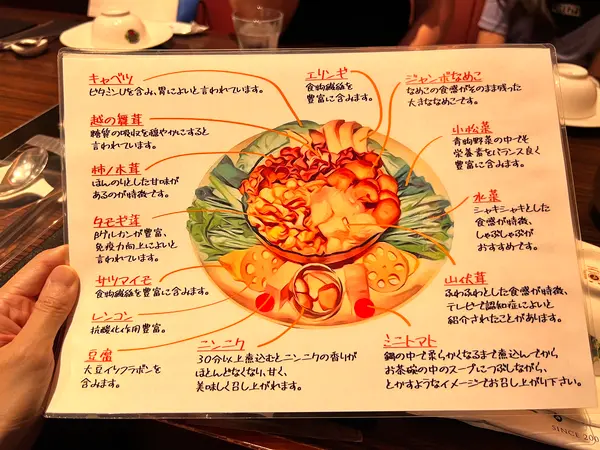 キャベツ
ビタミンUを含み、胃によいと言われています。
越の舞茸
糖質の吸収を穏やかにすると
言われています。
柿ノ木茸
ほんのりとした甘味が
あるのが特徴です。
タモギ茸
βグルカンが豊富、
免疫力向上によいと
言われています。
サツマイモ
食物繊維を豊富に含みます。
レンコン
抗酸化作用豊富。
豆腐
大豆イソフラボンを
含みます。
エリンギ
食物繊維を
豊富に含みます。
ジャンボなめこ
なめこの食感がそのまま残った
大きななめこです。
小松菜
青物野菜の中でも
栄養素をバランス良く
豊富に含みます。
水菜
シャキシャキとした
食感が特徴、
しゃぶしゃぶが
おすすめです。
山伏茸
ふわふわとした食感が特徴、
テレビで認知症によいと
紹介されたことがあります。
ニンニク
30分以上煮込むとニンニクの香りが
ほとんどなくなり、甘く、
美味しく召し上がれます。
ミニトマト
鍋の中で柔らかくなるまで煮込んでから、
お茶碗の中のスープにつぶしながら、
とかすようなイメージでお召し上がり下さい。
SINCE 200